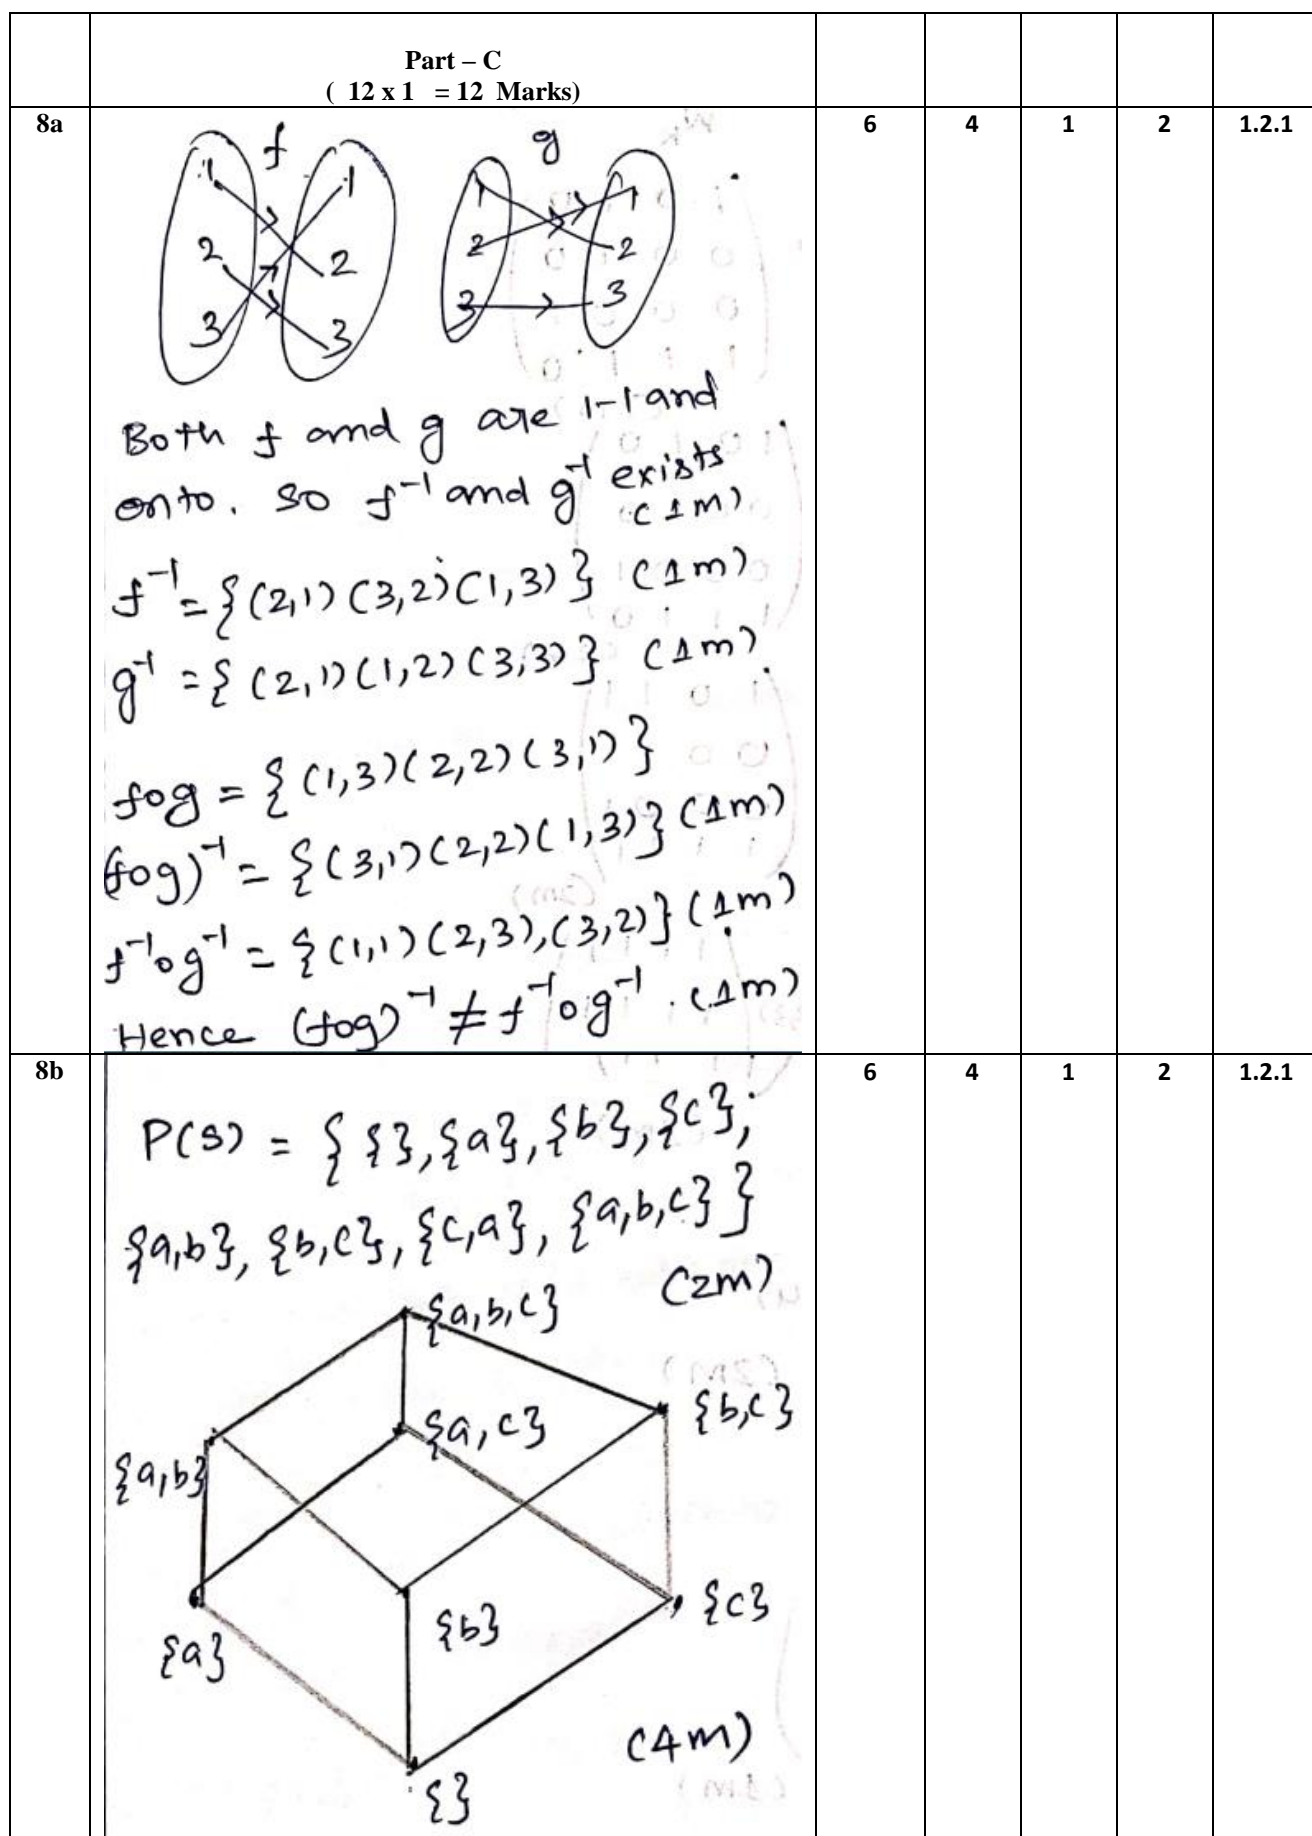 Part – C
( 12 x 1 = 12 Marks)
8a
f g
1 1 1 1
2 2 2 2
3 3 3 3
6 4 1 2 1.2.1
Both f and g are 1-1 and
onto. So f⁻¹ and g⁻¹ exists
(1m)
f⁻¹ = {(2,1)(3,2)(1,3)} (1m)
g⁻¹ = {(2,1)(1,2)(3,3)} (1m)
fog = {(1,3)(2,2)(3,1)}
(fog)⁻¹ = {(3,1)(2,2)(1,3)} (1m)
f⁻¹og⁻¹ = {(1,1)(2,3),(3,2)} (1m)
Hence (fog)⁻¹ ≠ f⁻¹og⁻¹. (1m)
8b
6 4 1 2 1.2.1
P(S) = { {},{a},{b},{c},
{a,b}, {b,c}, {c,a}, {a,b,c} }
(2m)
{a,b,c}
{b,c}
{a,c}
{a,b}
{c}
{b}
{a}
(4m)
{}